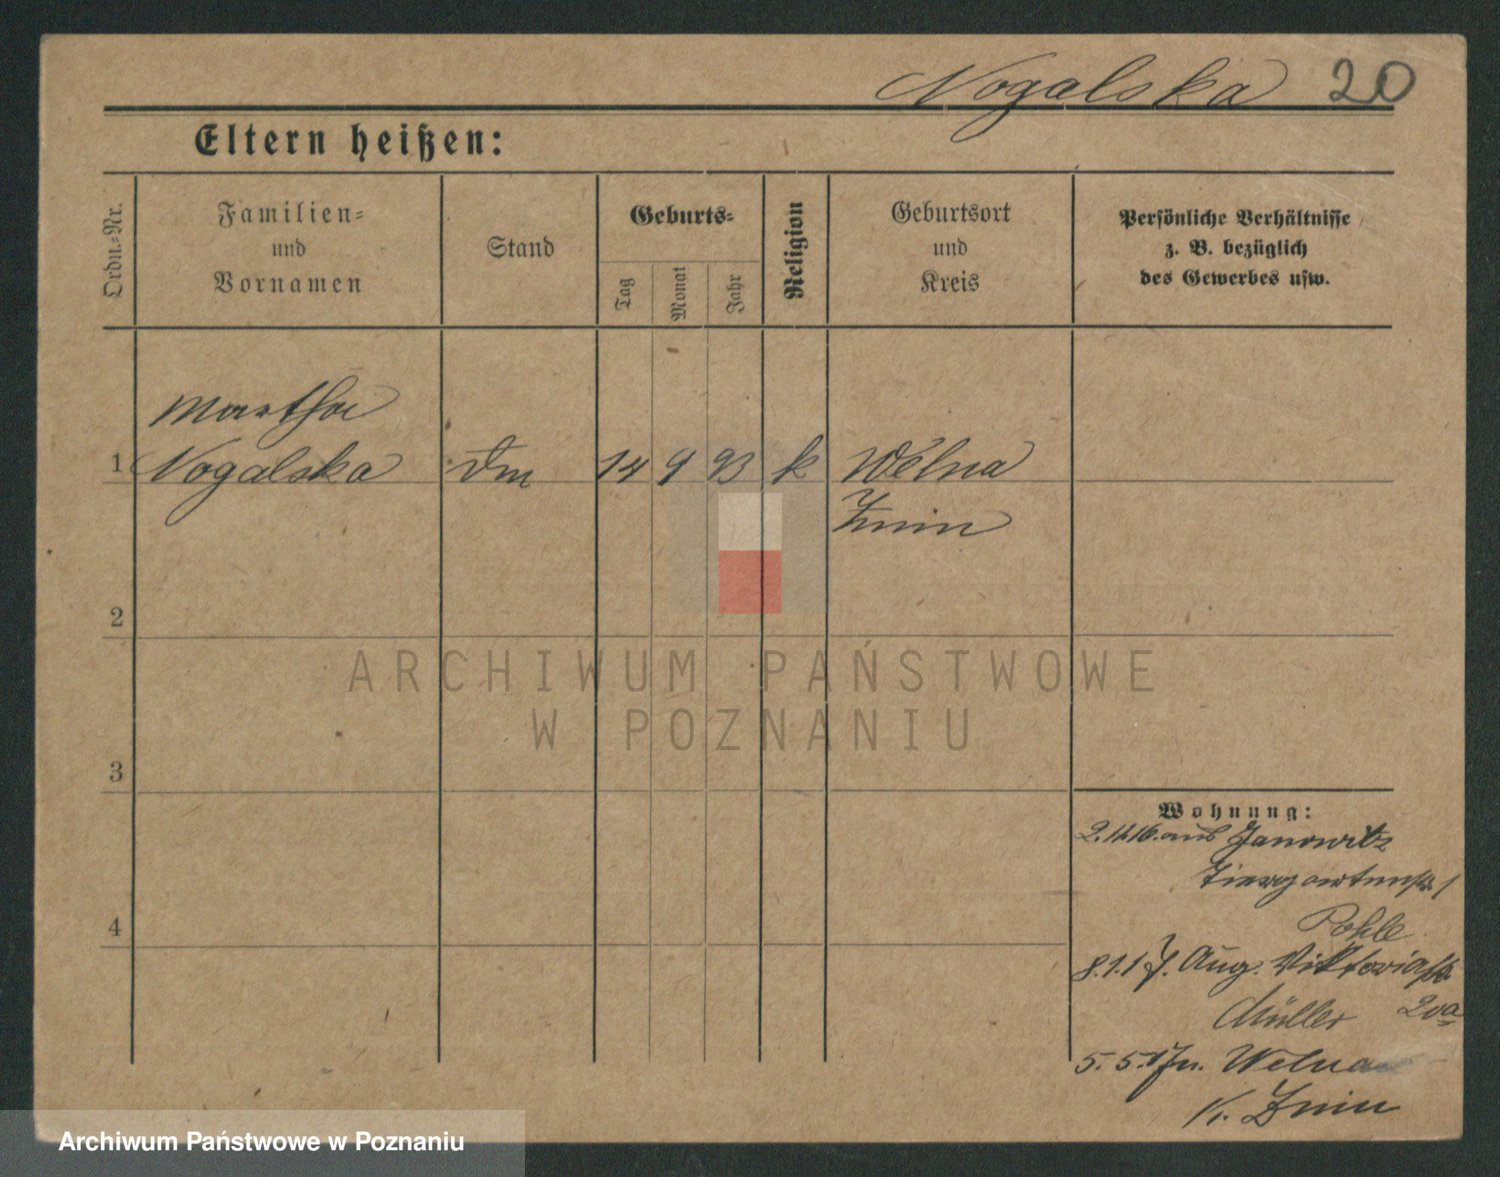 Nogalska 20
Eltern heißen:
Ordn.-Nr.
Familien-
und
Vornamen
Stand
Geburts-
Tag
Monat
Jahr
Religion
Geburtsort
und
Kreis
Persönliche Verhältnisse
z. B. bezüglich
des Gewerbes usw.
Martha
1 Nogalska Dm 14 9 93 k Welna
Znin
2
ARCHIWUM PAŃSTWOWE
W POZNANIU
3
Wohnung:
aus Janowitz
Tiergartenstr. 1
4
Pohle
8.1.17. Aug. Viktoriastr.
Müller 20a
5.5.17 n. Welna
K. Znin
Archiwum Państwowe w Poznaniu